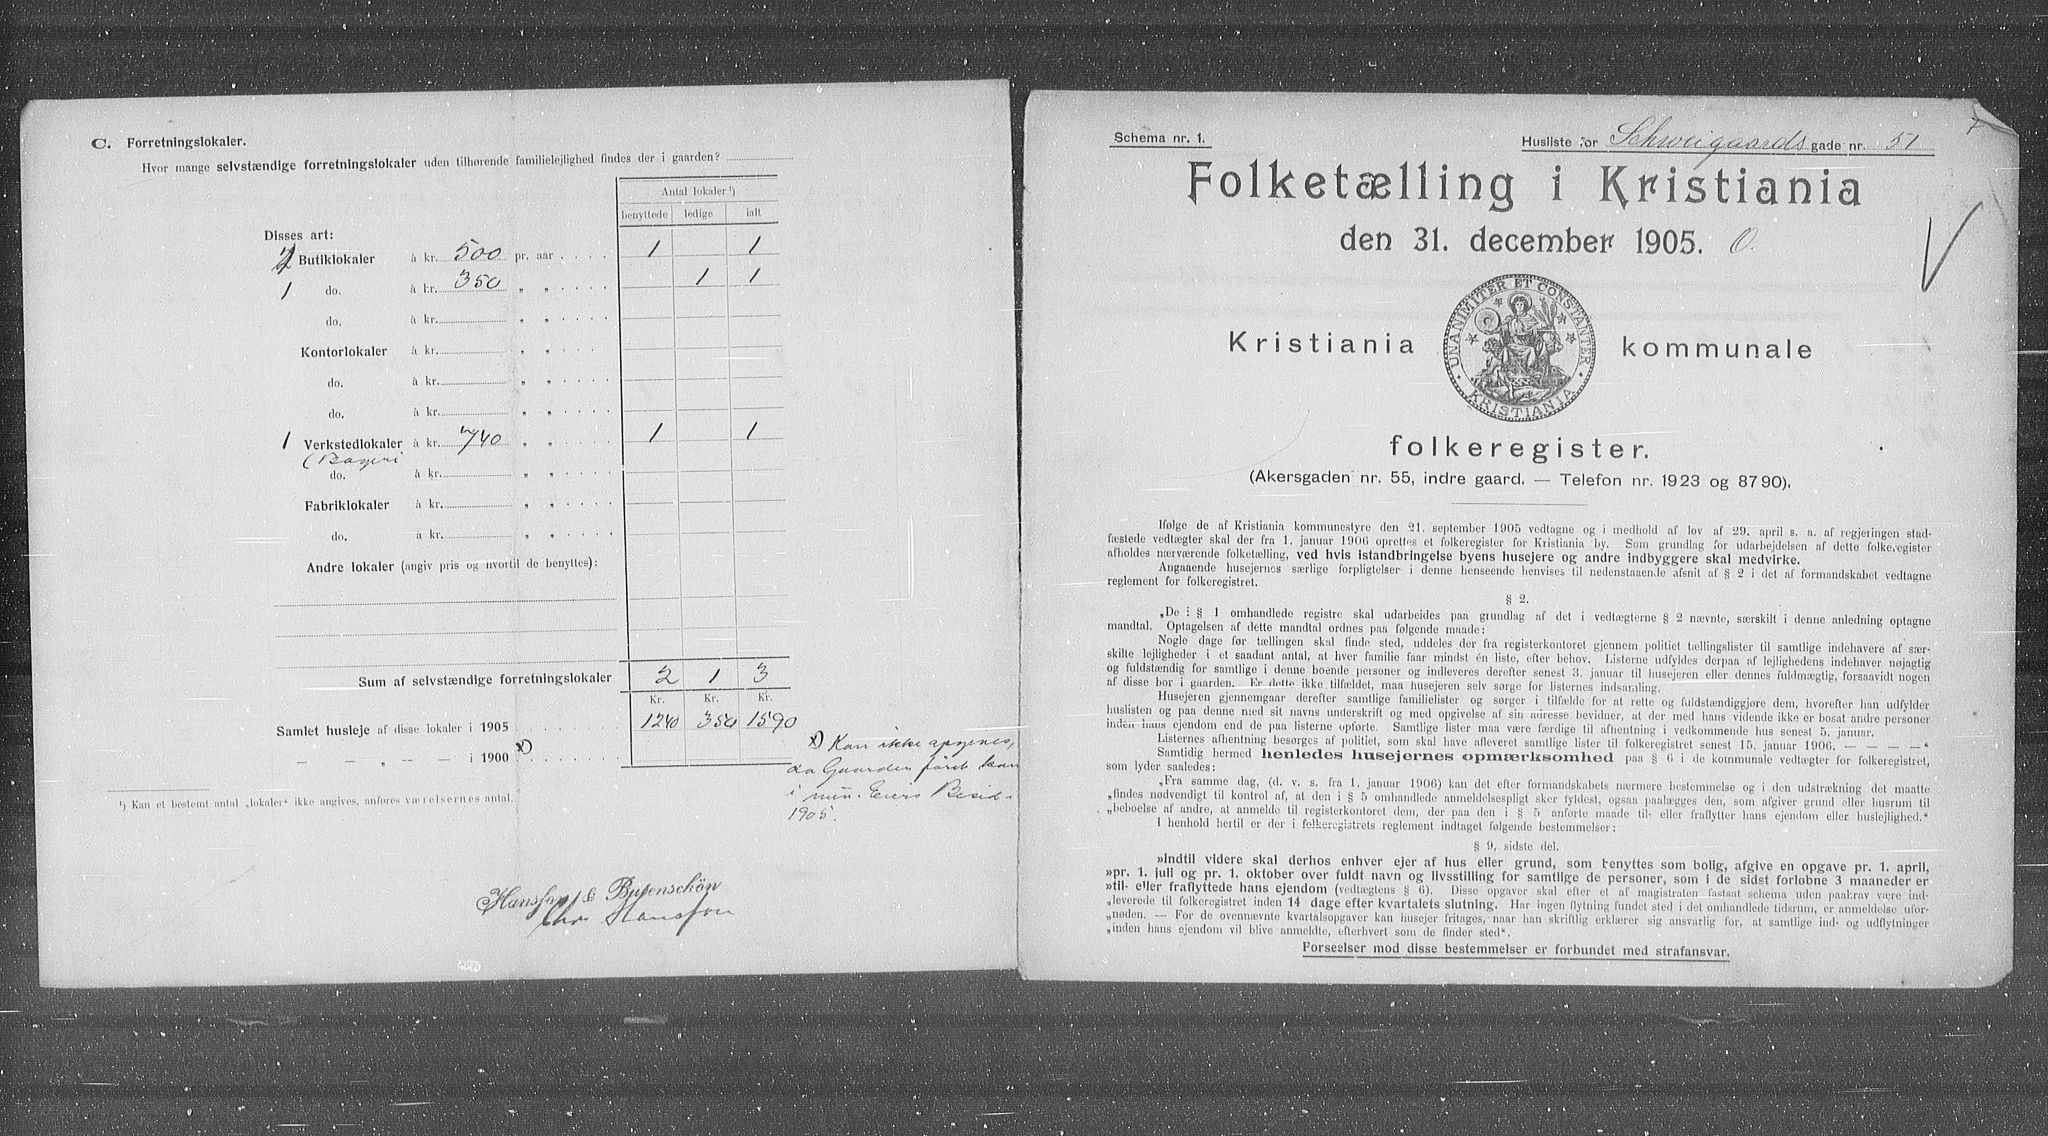 C. Forretningslokaler.
Hvor mange selvstændige forretningslokaler uden tilhørende familielejlighed findes der i gaarden?
Antal lokaler ¹)
benyttede ledige ialt
Disses art:
Butiklokaler à kr. 500 pr. aar 1 1
1 do. à kr. 350 „ „ 1 1
do. à kr. „ „
Kontorlokaler à kr. „ „
do. à kr. „ „
do. à kr. „ „
1 Verkstedlokaler à kr. 740 „ „ 1 1
(Bageri
do. à kr. „ „
Fabriklokaler à kr. „ „
do. à kr. „ „
Andre lokaler (angiv pris og hvortil de benyttes):
Sum af selvstændige forretningslokaler 2 1 3
Kr. Kr. Kr.
Samlet husleje af disse lokaler i 1905 1240 350 1590
— — „ — — i 1900 x)
x) Kan ikke opgives,
da Gaarden først kom
i min Eiers Besid-
1905.
¹) Kan et bestemt antal „lokaler“ ikke angives, anføres værelsernes antal.
Hansson & Busenschön
Chr Hansson
Schema nr. 1.
Husliste for Schweigaards gade nr. 51
Folketælling i Kristiania
den 31. december 1905. O.
Kristiania kommunale
UNANIMITER ET CONSTANTER
KRISTIANIA
folkeregister.
(Akersgaden nr. 55, indre gaard. — Telefon nr. 1923 og 8790).
Ifølge de af Kristiania kommunestyre den 21. september 1905 vedtagne og i medhold af lov af 29. april s. a. af regjeringen stad-
fæstede vedtægter skal der fra 1. januar 1906 oprettes et folkeregister for Kristiania by. Som grundlag for udarbejdelsen af dette folkeregister
afholdes nærværende folketælling, ved hvis istandbringelse byens husejere og andre indbyggere skal medvirke.
Angaaende husejernes særlige forpligtelser i denne henseende henvises til nedenstaaende afsnit af § 2 i det af formandskabet vedtagne
reglement for folkeregistret.
§ 2.
„De i § 1 omhandlede registre skal udarbeides paa grundlag af det i vedtægterne § 2 nævnte, særskilt i denne anledning optagne
mandtal. Optagelsen af dette mandtal ordnes paa følgende maade:
Nogle dage før tællingen skal finde sted, uddeles der fra registerkontoret gjennem politiet tællingslister til samtlige indehavere af sær-
skilte lejligheder i et saadant antal, at hver familie faar mindst én liste, efter behov. Listerne udfyldes derpaa af lejlighedens indehaver nøjagtig
og fuldstændig for samtlige i denne boende personer og indleveres derefter senest 3. januar til husejeren eller dennes fuldmægtig, forsaavidt nogen
af disse bor i gaarden. Er dette ikke tilfældet, maa husejeren selv sørge for listernes indsamling.
Husejeren gjennemgaar derefter samtlige familielister og sørger i tilfælde for at rette og fuldstændiggjøre dem, hvorefter han udfylder
huslisten og paa denne med sit navns underskrift og med opgivelse af sin adresse bevidner, at der med hans vidende ikke er bosat andre personer
inden hans ejendom end de paa listerne opførte. Samtlige lister maa være færdige til afhentning i vedkommende hus senest 5. januar.
Listernes afhentning besørges af politiet, som skal have afleveret samtlige lister til folkeregistret senest 15. januar 1906. — — — —“
Samtidig hermed henledes husejernes opmærksomhed paa § 6 i de kommunale vedtægter for folkeregistret,
som lyder saaledes:
„Fra samme dag, (d. v. s. fra 1. januar 1906) kan det efter formandskabets nærmere bestemmelse og i den udstrækning det maatte
„findes nødvendigt til kontrol af, at den i § 5 omhandlede anmeldelsespligt sker fyldest, ogsaa paalægges den, som afgiver grund eller husrum til
„beboelse af andre, at anmelde til registerkontoret dem, der paa den i § 5 anførte maade til- eller fraflytter hans ejendom eller huslejlighed.“
I henhold hertil er der i folkeregistrets reglement indtaget følgende bestemmelser:
§ 9, sidste del.
»Indtil videre skal derhos enhver ejer af hus eller grund, som benyttes som bolig, afgive en opgave pr. 1. april,
»pr. 1. juli og pr. 1. oktober over fuldt navn og livsstilling for samtlige de personer, som i de sidst forløbne 3 maaneder er
»til- eller fraflyttede hans ejendom (vedtægtens § 6). Disse opgaver skal efter et af magistraten fastsat schema uden paakrav være ind-
„leverede til folkeregistret inden 14 dage efter kvartalets slutning. Har ingen flytning fundet sted i det omhandlede tidsrum, er anmeldelse ufor-
„nøden. — For de ovennævnte kvartalsopgaver kan husejer fritages, naar han skriftlig erklærer sig ansvarlig for, at samtlige ind- og udflytninger
„inden hans ejendom vil blive anmeldte, efterhvert som de finder sted“.
Forseelser mod disse bestemmelser er forbundet med strafansvar.